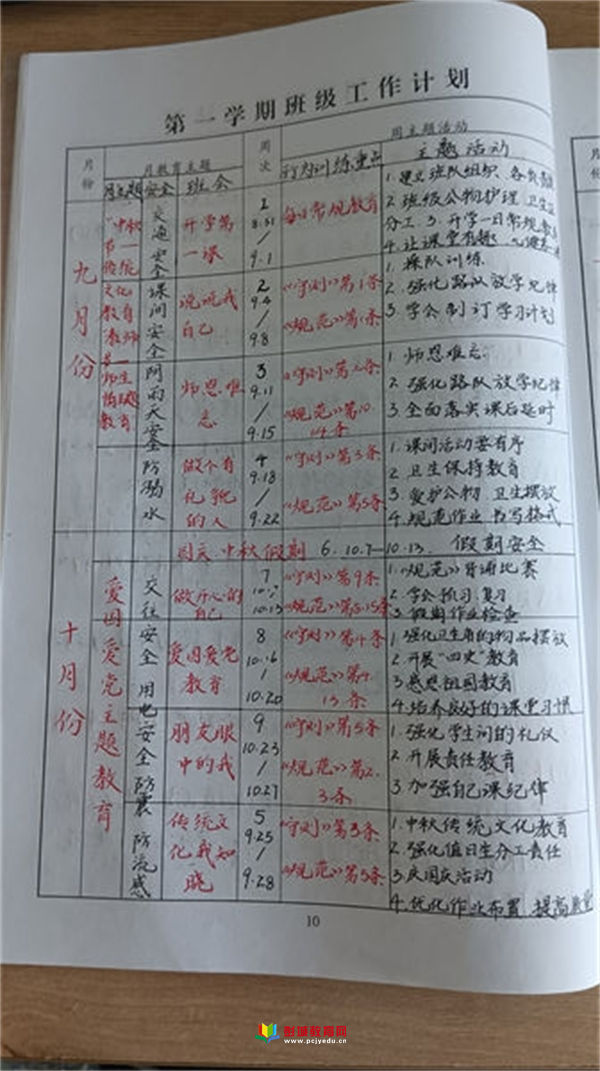 第一学期班级工作计划
月份
月教育主题
周次
周主题活动
月主题
安全
班会
行为训练重点
主题活动
九月份
"中秋
节—
传统
文化
教育
教师
节—
师生
教育
交通安全
开学第
一课
2
8.31
/
9.1
每日常规教育
1.建立班队组织 各负责任
2.班级公物护理 卫生
分工 3.开学一日常规教育
4.让课堂有趣
课间安全
说说我
自己
2
9.4
/
9.8
《守则》第1条
《规范》第1条
1.操队训练
2.强化路队放学纪律
3.学会制订学习计划
阴雨天安全
师恩难
忘
3
9.11
/
9.15
《守则》第2条
《规范》第10
14条
1.师恩难忘
2.强化路队放学纪律
3.全面落实课后延时
防溺水
做个有
礼貌
的人
4
9.18
/
9.22
《守则》第3条
《规范》第5条
1.课间活动要有序
2.卫生保持教育
3.爱护公物 卫生摆放
4.规范作业 书写格式
国庆 中秋假期 6. 10.7—10.13. 假期安全
十月份
爱国爱党主题教育
交往安全
做开心的
自己
7
10.13
《守则》第9条
《规范》第8.15条
1.《规范》背诵比赛
2.学会预习.复习
3.假期作业检查
用电安全
爱国爱党
教育
8
10.16
/
10.20
《守则》第4条
《规范》第4.
13条
1.强化卫生角的物品摆放
2.开展"四史"教育
3.感恩祖国教育
4.培养良好的课堂习惯
防震
朋友眼
中的我
9
10.23
/
10.27
《守则》第5条
《规范》第2.
3条
1.强化学生间的礼仪
2.开展责任教育
3.加强自己课纪律
防流感
传统文
化我知
晓
5
9.25
/
9.28
《守则》第3条
《规范》第5条
1.中秋传统文化教育
2.强化值日生分工责任
3.庆国庆活动
4.优化作业布置 提高质量
10
教育网
www.pcjyedu.cn